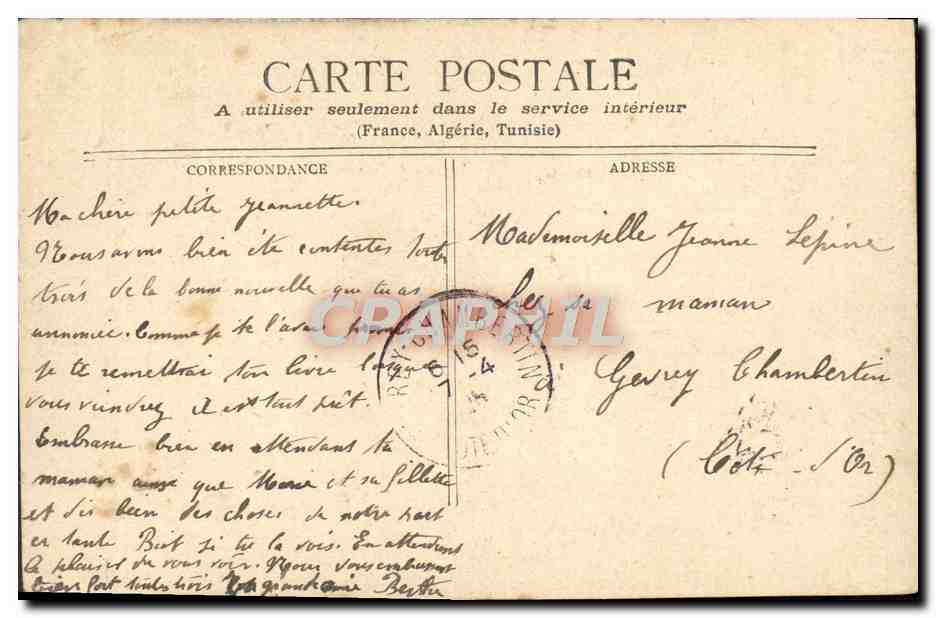 CARTE POSTALE
A utiliser seulement dans le service intérieur
(France, Algérie, Tunisie)
CORRESPONDANCE
Ma chère petite Jeannette.
Nous avons bien été contentes toutes
trois de la bonne nouvelle que tu as
annoncée. Comme je te l'avais
je te remettrai ton livre lorsque
vous viendrez il est tout prêt.
Embrasse bien en attendant ta
maman ainsi que et sa fillette
et dis bien des choses de notre part
en tante si tu la vois. En attendant
le plaisir de vous voir. Nous vous embrassons
bien fort toutes trois grande amie Berthe
ADRESSE
Mademoiselle Jeanne Lépine
chez sa maman
Gevrey Chambertin
(Côte-d'Or)
CPAPHIL
REY-CHAMBERTIN
15
-4
COTE D'OR